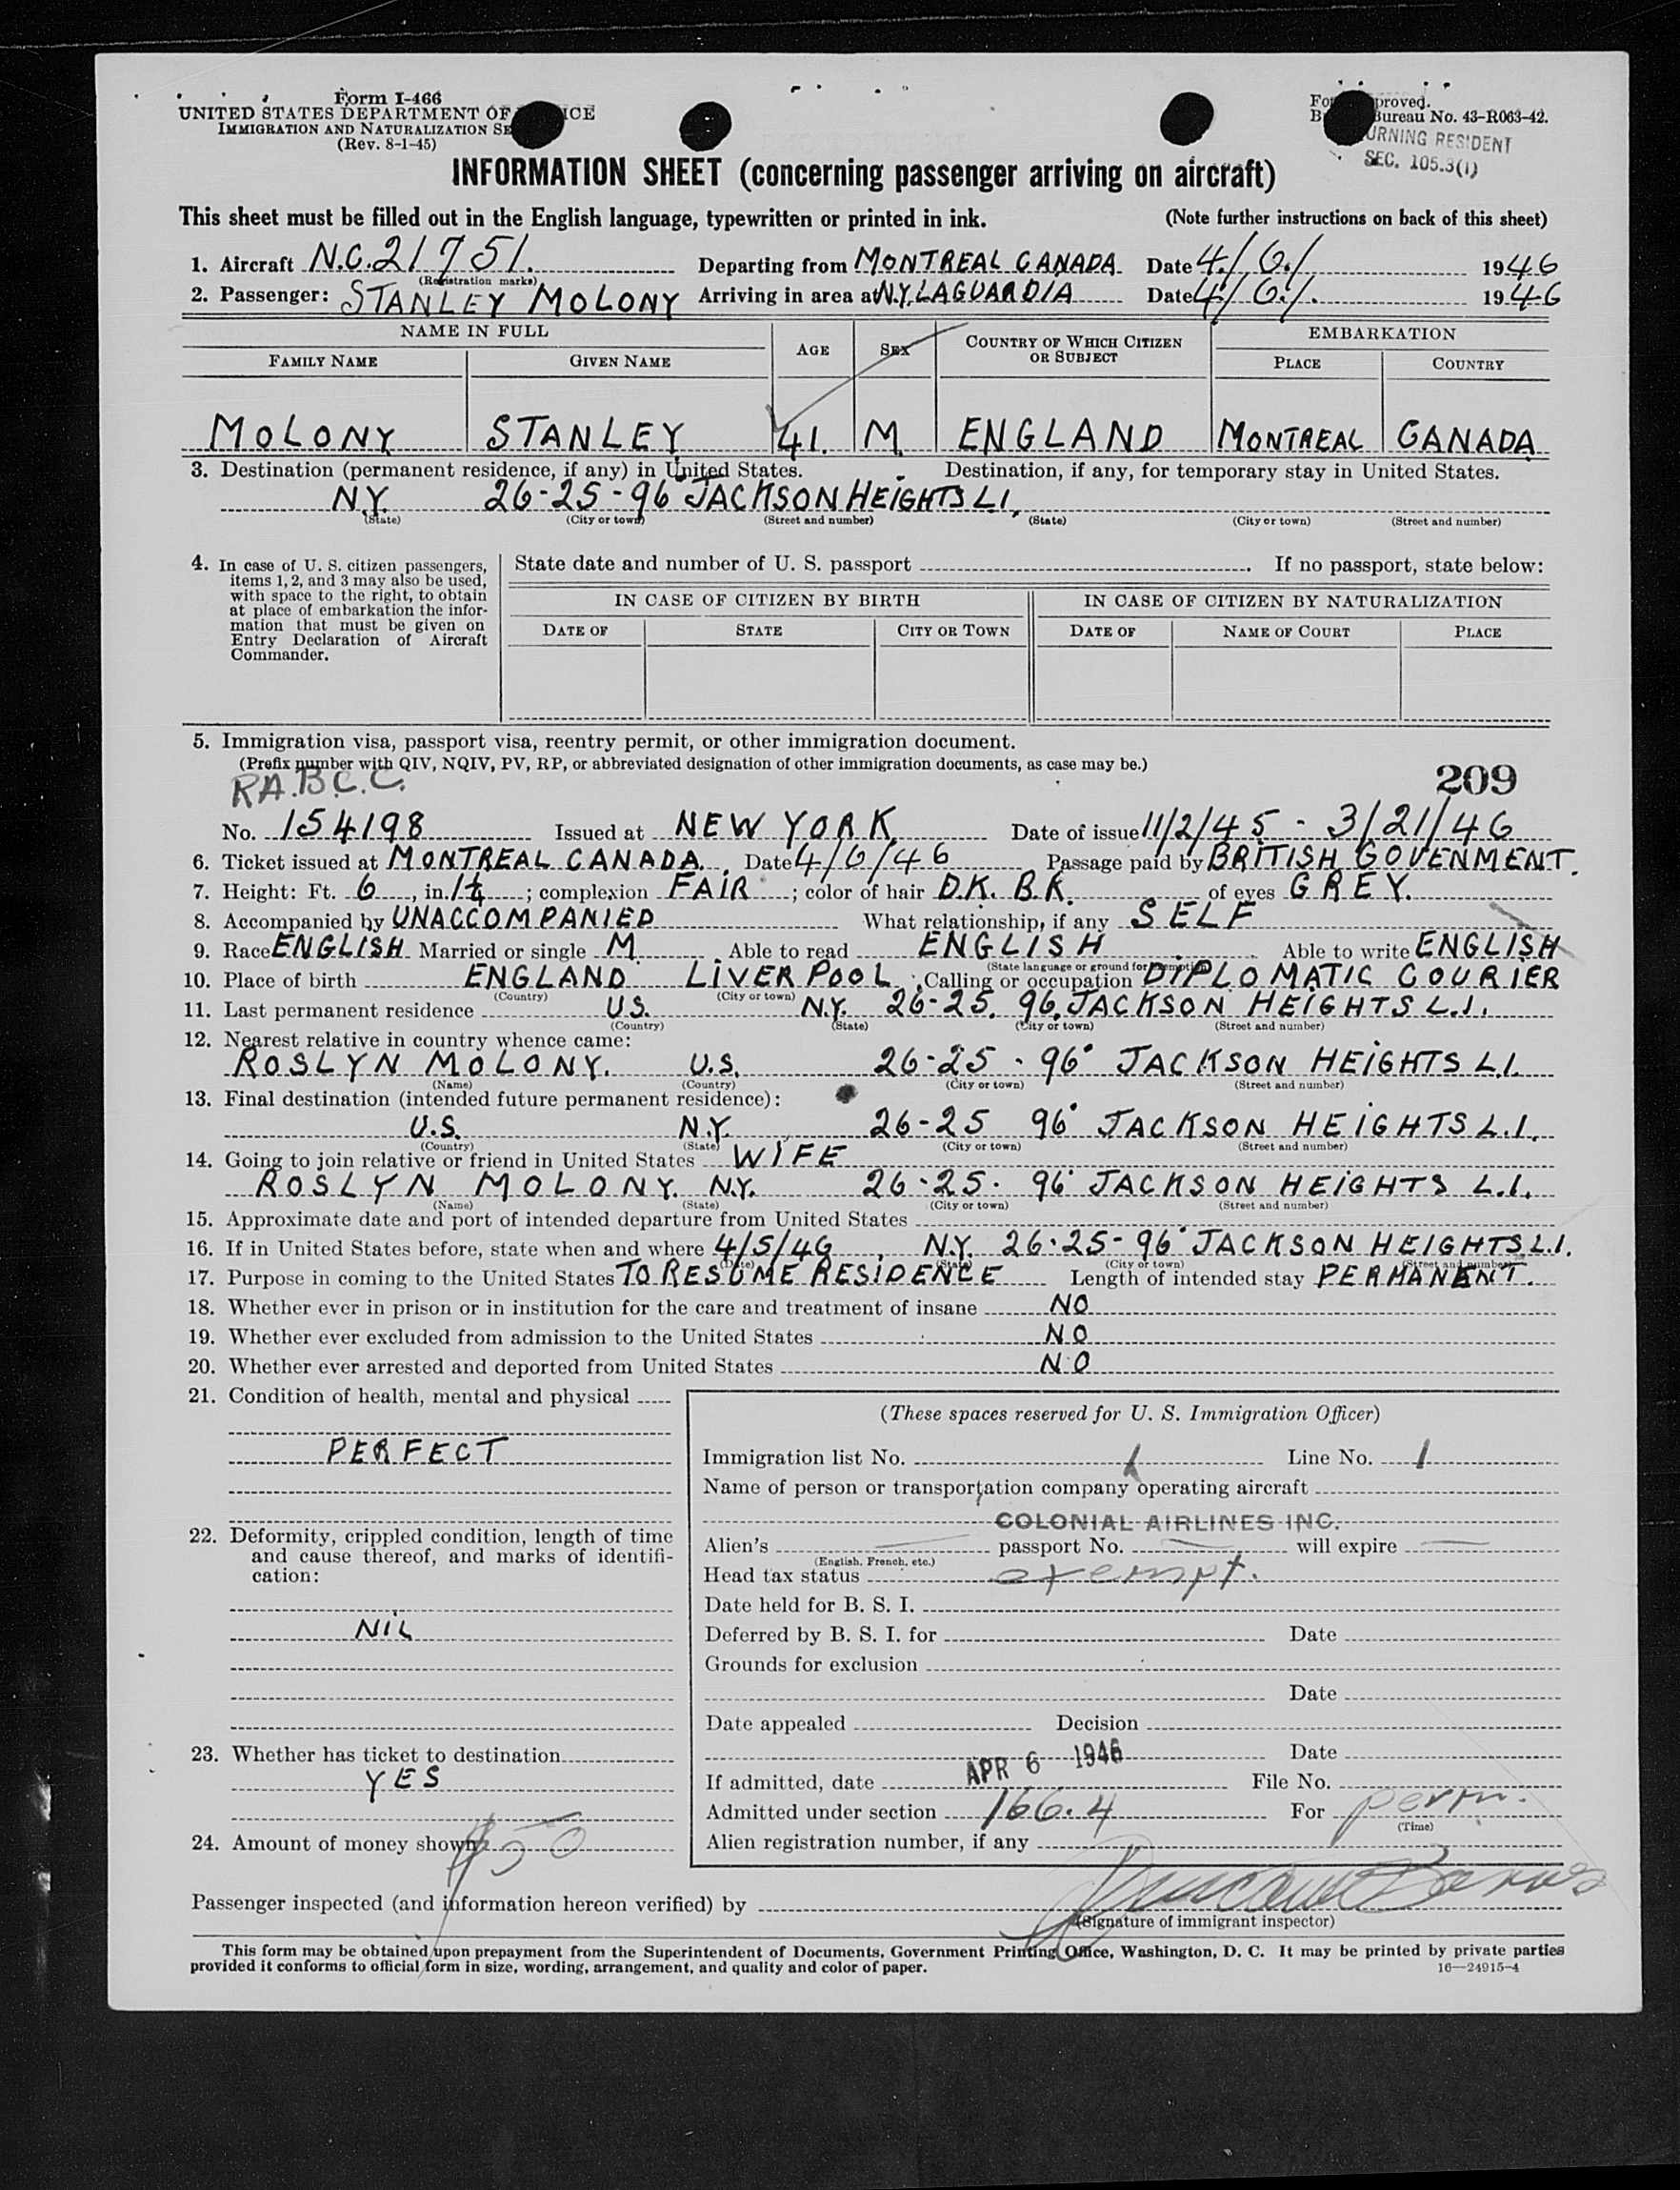 Form I-466
UNITED STATES DEPARTMENT OF ICE
IMMIGRATION AND NATURALIZATION SE
(Rev. 8-1-45)
proved.
Bureau No. 43-R063-42.
URNING RESIDENT
SEC. 105.3(1)
INFORMATION SHEET (concerning passenger arriving on aircraft)
This sheet must be filled out in the English language, typewritten or printed in ink. (Note further instructions on back of this sheet)
1. Aircraft N.C.21751. Departing from MONTREAL CANADA Date 4/6/ 1946
(Registration marks)
2. Passenger: STANLEY MOLONY Arriving in area at N.Y. LAGUARDIA Date 4/6/. 1946
NAME IN FULL AGE SEX COUNTRY OF WHICH CITIZEN OR SUBJECT EMBARKATION
FAMILY NAME GIVEN NAME PLACE COUNTRY
MOLONY STANLEY 41. M. ENGLAND MONTREAL CANADA
3. Destination (permanent residence, if any) in United States. Destination, if any, for temporary stay in United States.
N.Y. 26-25-96 JACKSON HEIGHTS L.I.
(State) (City or town) (Street and number) (State) (City or town) (Street and number)
4. In case of U. S. citizen passengers, items 1, 2, and 3 may also be used, with space to the right, to obtain at place of embarkation the information that must be given on Entry Declaration of Aircraft Commander.
State date and number of U. S. passport . If no passport, state below:
IN CASE OF CITIZEN BY BIRTH IN CASE OF CITIZEN BY NATURALIZATION
DATE OF STATE CITY OR TOWN DATE OF NAME OF COURT PLACE
5. Immigration visa, passport visa, reentry permit, or other immigration document.
(Prefix number with QIV, NQIV, PV, RP, or abbreviated designation of other immigration documents, as case may be.)
R.A.B.C.C. 209
No. 154198 Issued at NEW YORK Date of issue 11/2/45 - 3/21/46
6. Ticket issued at MONTREAL CANADA. Date 4/6/46 Passage paid by BRITISH GOVENMENT.
7. Height: Ft. 6, in. 1¼; complexion FAIR; color of hair D.K. B.R. of eyes GREY.
8. Accompanied by UNACCOMPANIED What relationship, if any SELF
9. Race ENGLISH Married or single M. Able to read ENGLISH Able to write ENGLISH
(State language or ground for exemption)
10. Place of birth ENGLAND LIVERPOOL; Calling or occupation DIPLOMATIC COURIER
(Country) (City or town)
11. Last permanent residence U.S. N.Y. 26-25. 96. JACKSON HEIGHTS L.I.
(Country) (State) (City or town) (Street and number)
12. Nearest relative in country whence came:
ROSLYN MOLONY. U.S. 26-25 - 96 JACKSON HEIGHTS L.I.
(Name) (Country) (City or town) (Street and number)
13. Final destination (intended future permanent residence):
U.S. N.Y. 26-25 96 JACKSON HEIGHTS L.I.
(Country) (State) (City or town) (Street and number)
14. Going to join relative or friend in United States WIFE
ROSLYN MOLONY. N.Y. 26-25. 96 JACKSON HEIGHTS L.I.
(Name) (State) (City or town) (Street and number)
15. Approximate date and port of intended departure from United States
16. If in United States before, state when and where 4/5/46, N.Y. 26-25-96 JACKSON HEIGHTS L.I.
(Date) (State) (City or town) (Street and number)
17. Purpose in coming to the United States TO RESUME RESIDENCE Length of intended stay PERMANENT.
18. Whether ever in prison or in institution for the care and treatment of insane NO
19. Whether ever excluded from admission to the United States NO
20. Whether ever arrested and deported from United States NO
21. Condition of health, mental and physical
PERFECT
22. Deformity, crippled condition, length of time and cause thereof, and marks of identification:
NIL
23. Whether has ticket to destination
YES
24. Amount of money shown $50
(These spaces reserved for U. S. Immigration Officer)
Immigration list No. 1 Line No. 1
Name of person or transportation company operating aircraft
COLONIAL AIRLINES INC.
Alien's passport No. will expire
(English, French, etc.)
Head tax status exempt.
Date held for B. S. I.
Deferred by B. S. I. for Date
Grounds for exclusion
Date
Date appealed Decision
Date
If admitted, date APR 6 1946 File No.
Admitted under section 166.4 For perm.
(Time)
Alien registration number, if any
Passenger inspected (and information hereon verified) by
(Signature of immigrant inspector)
This form may be obtained upon prepayment from the Superintendent of Documents, Government Printing Office, Washington, D. C. It may be printed by private parties
provided it conforms to official form in size, wording, arrangement, and quality and color of paper. 16—24915-4